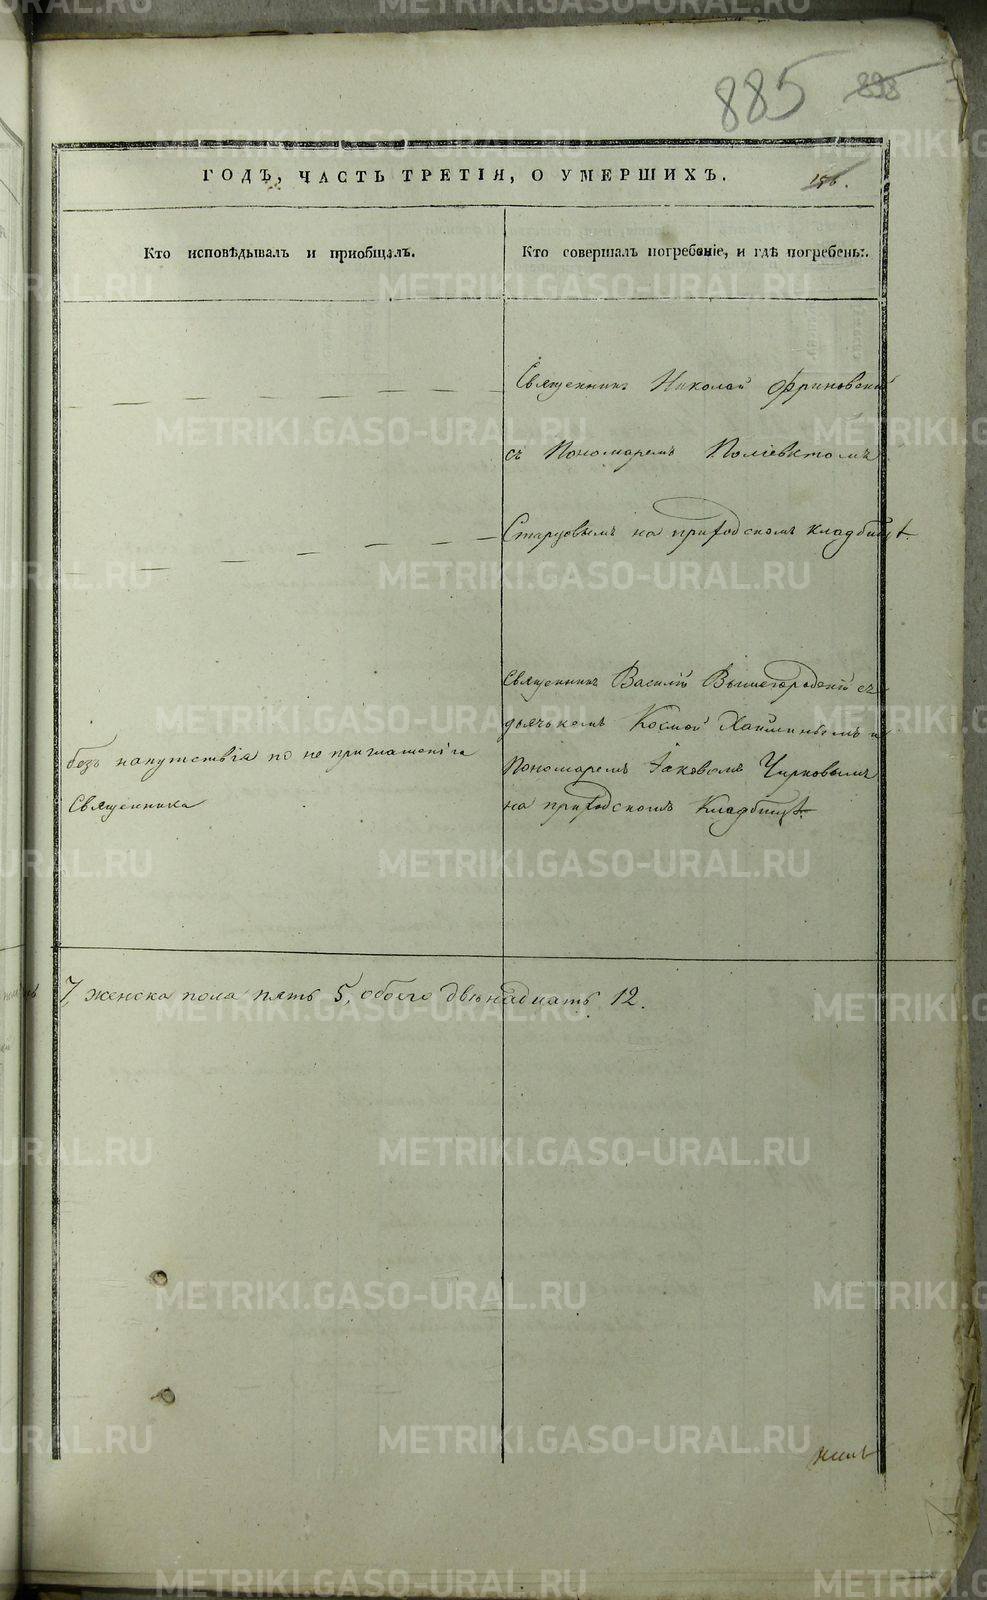 885 898
ГОДЪ, ЧАСТЬ ТРЕТІЯ, О УМЕРШИХЪ. 156.
Кто исповѣдывалъ и пріобщалъ.
Кто совершалъ погребеніе, и гдѣ погребены.
Священникъ Николай Фриновскій
съ Пономаремъ Поліевктомъ
Старцовымъ на приходскомъ кладбищѣ.
безъ напутствія по не приглашенію
Священника
Священникъ Василій Вышегородскій съ
дьячкомъ Космой Ханжинымъ и
Пономаремъ Іаковомъ Чирковымъ
на приходскомъ Кладбищѣ.
7, женска пола пять 5, обоего двѣнадцать 12.
METRIKI.GASO-URAL.RU